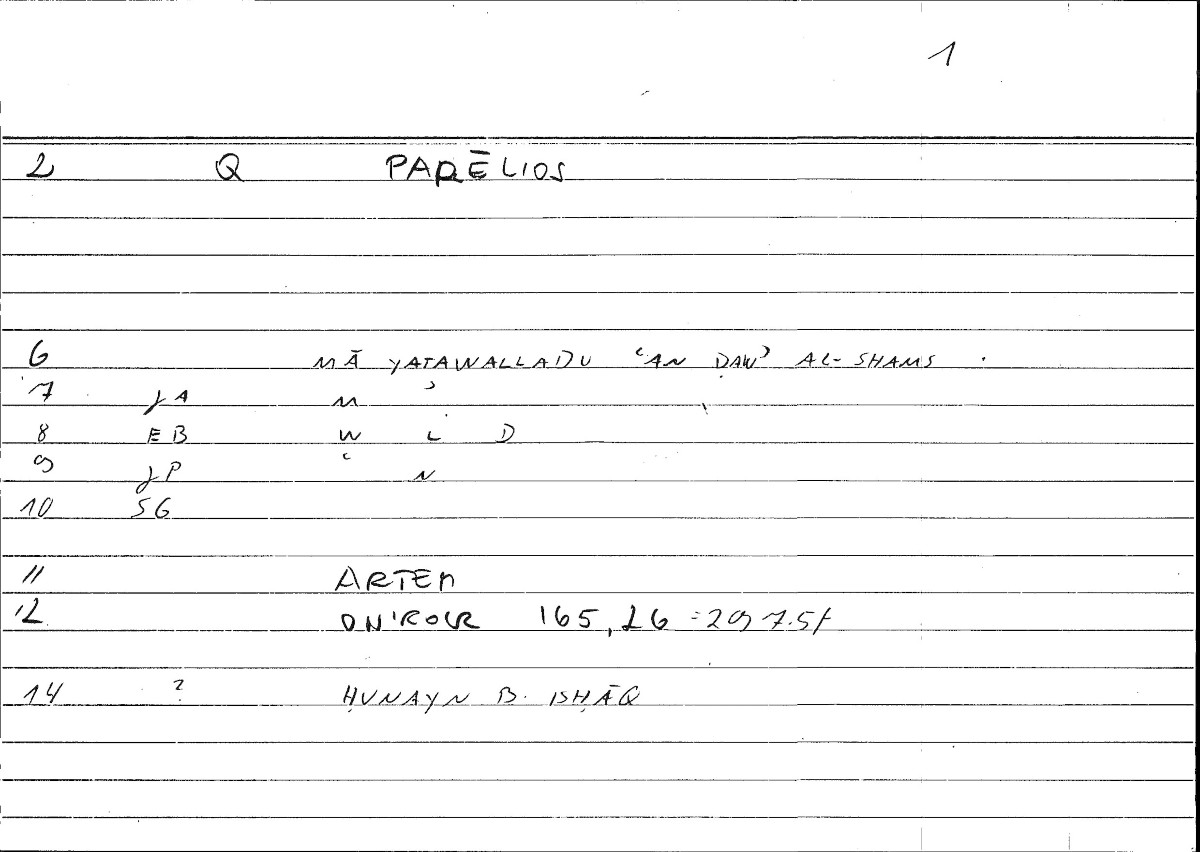 1
2 Q PARĒLIOS
6 MĀ YATAWALLADU ʿAN ḌAWʾ AL-SHAMS .
7 JA M ʾ
8 EB W L D
9 JP ʿ N
10 SG
11 ARTEM
12 ONIROCR 165,26 = 297.5f
14 ? ḤUNAYN B. ISḤĀQ